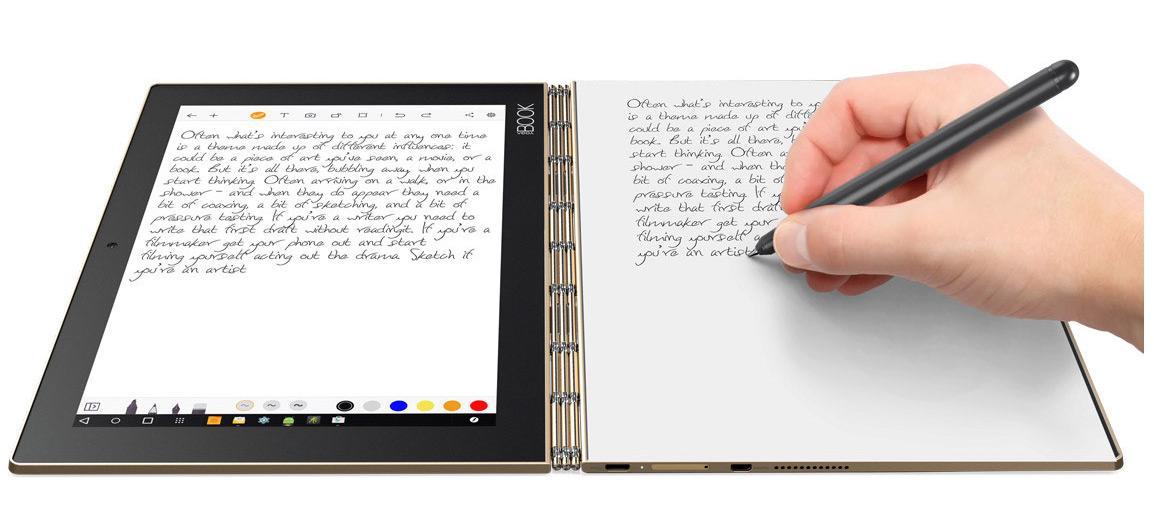 YOGA BOOK
Often what's interesting to you at any one time
is a theme made up of different influences: it
could be a piece of art you've seen, a movie, or a
book. But it's all there, bubbling away when you
start thinking. Often arriving on a walk, or in the
shower - and when they do appear they need a
bit of coaxing, a bit of sketching, and a bit of
pressure testing. If you're a writer you need to
write that first draft without reading it. If you're a
filmmaker get your phone out and start
filming yourself acting out the drama. Sketch if
you're an artist
Often what's interesting to
is a theme made up of
could be a piece of art
book. But it's all there,
start thinking. Often
shower - and when
bit of coaxing, a bit of
pressure testing. If
write that first
filmmaker get your
filming yourself
you're an artist